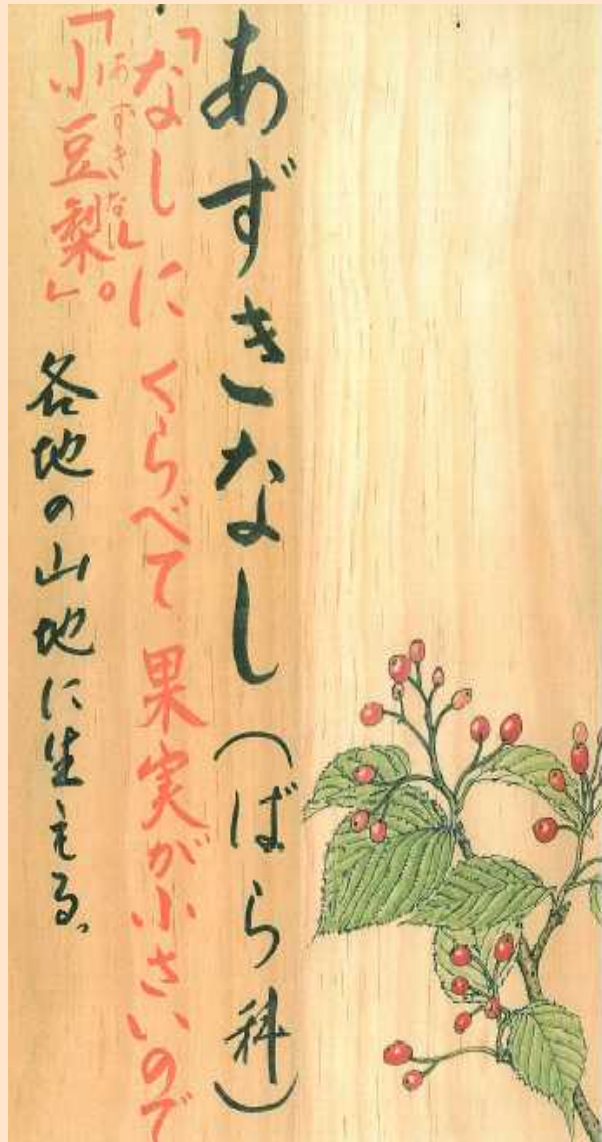 あずきなし(ばら科)
「なし」にくらべて果実が小さいので
「小豆梨」。
あずきなし
各地の山地に生える。